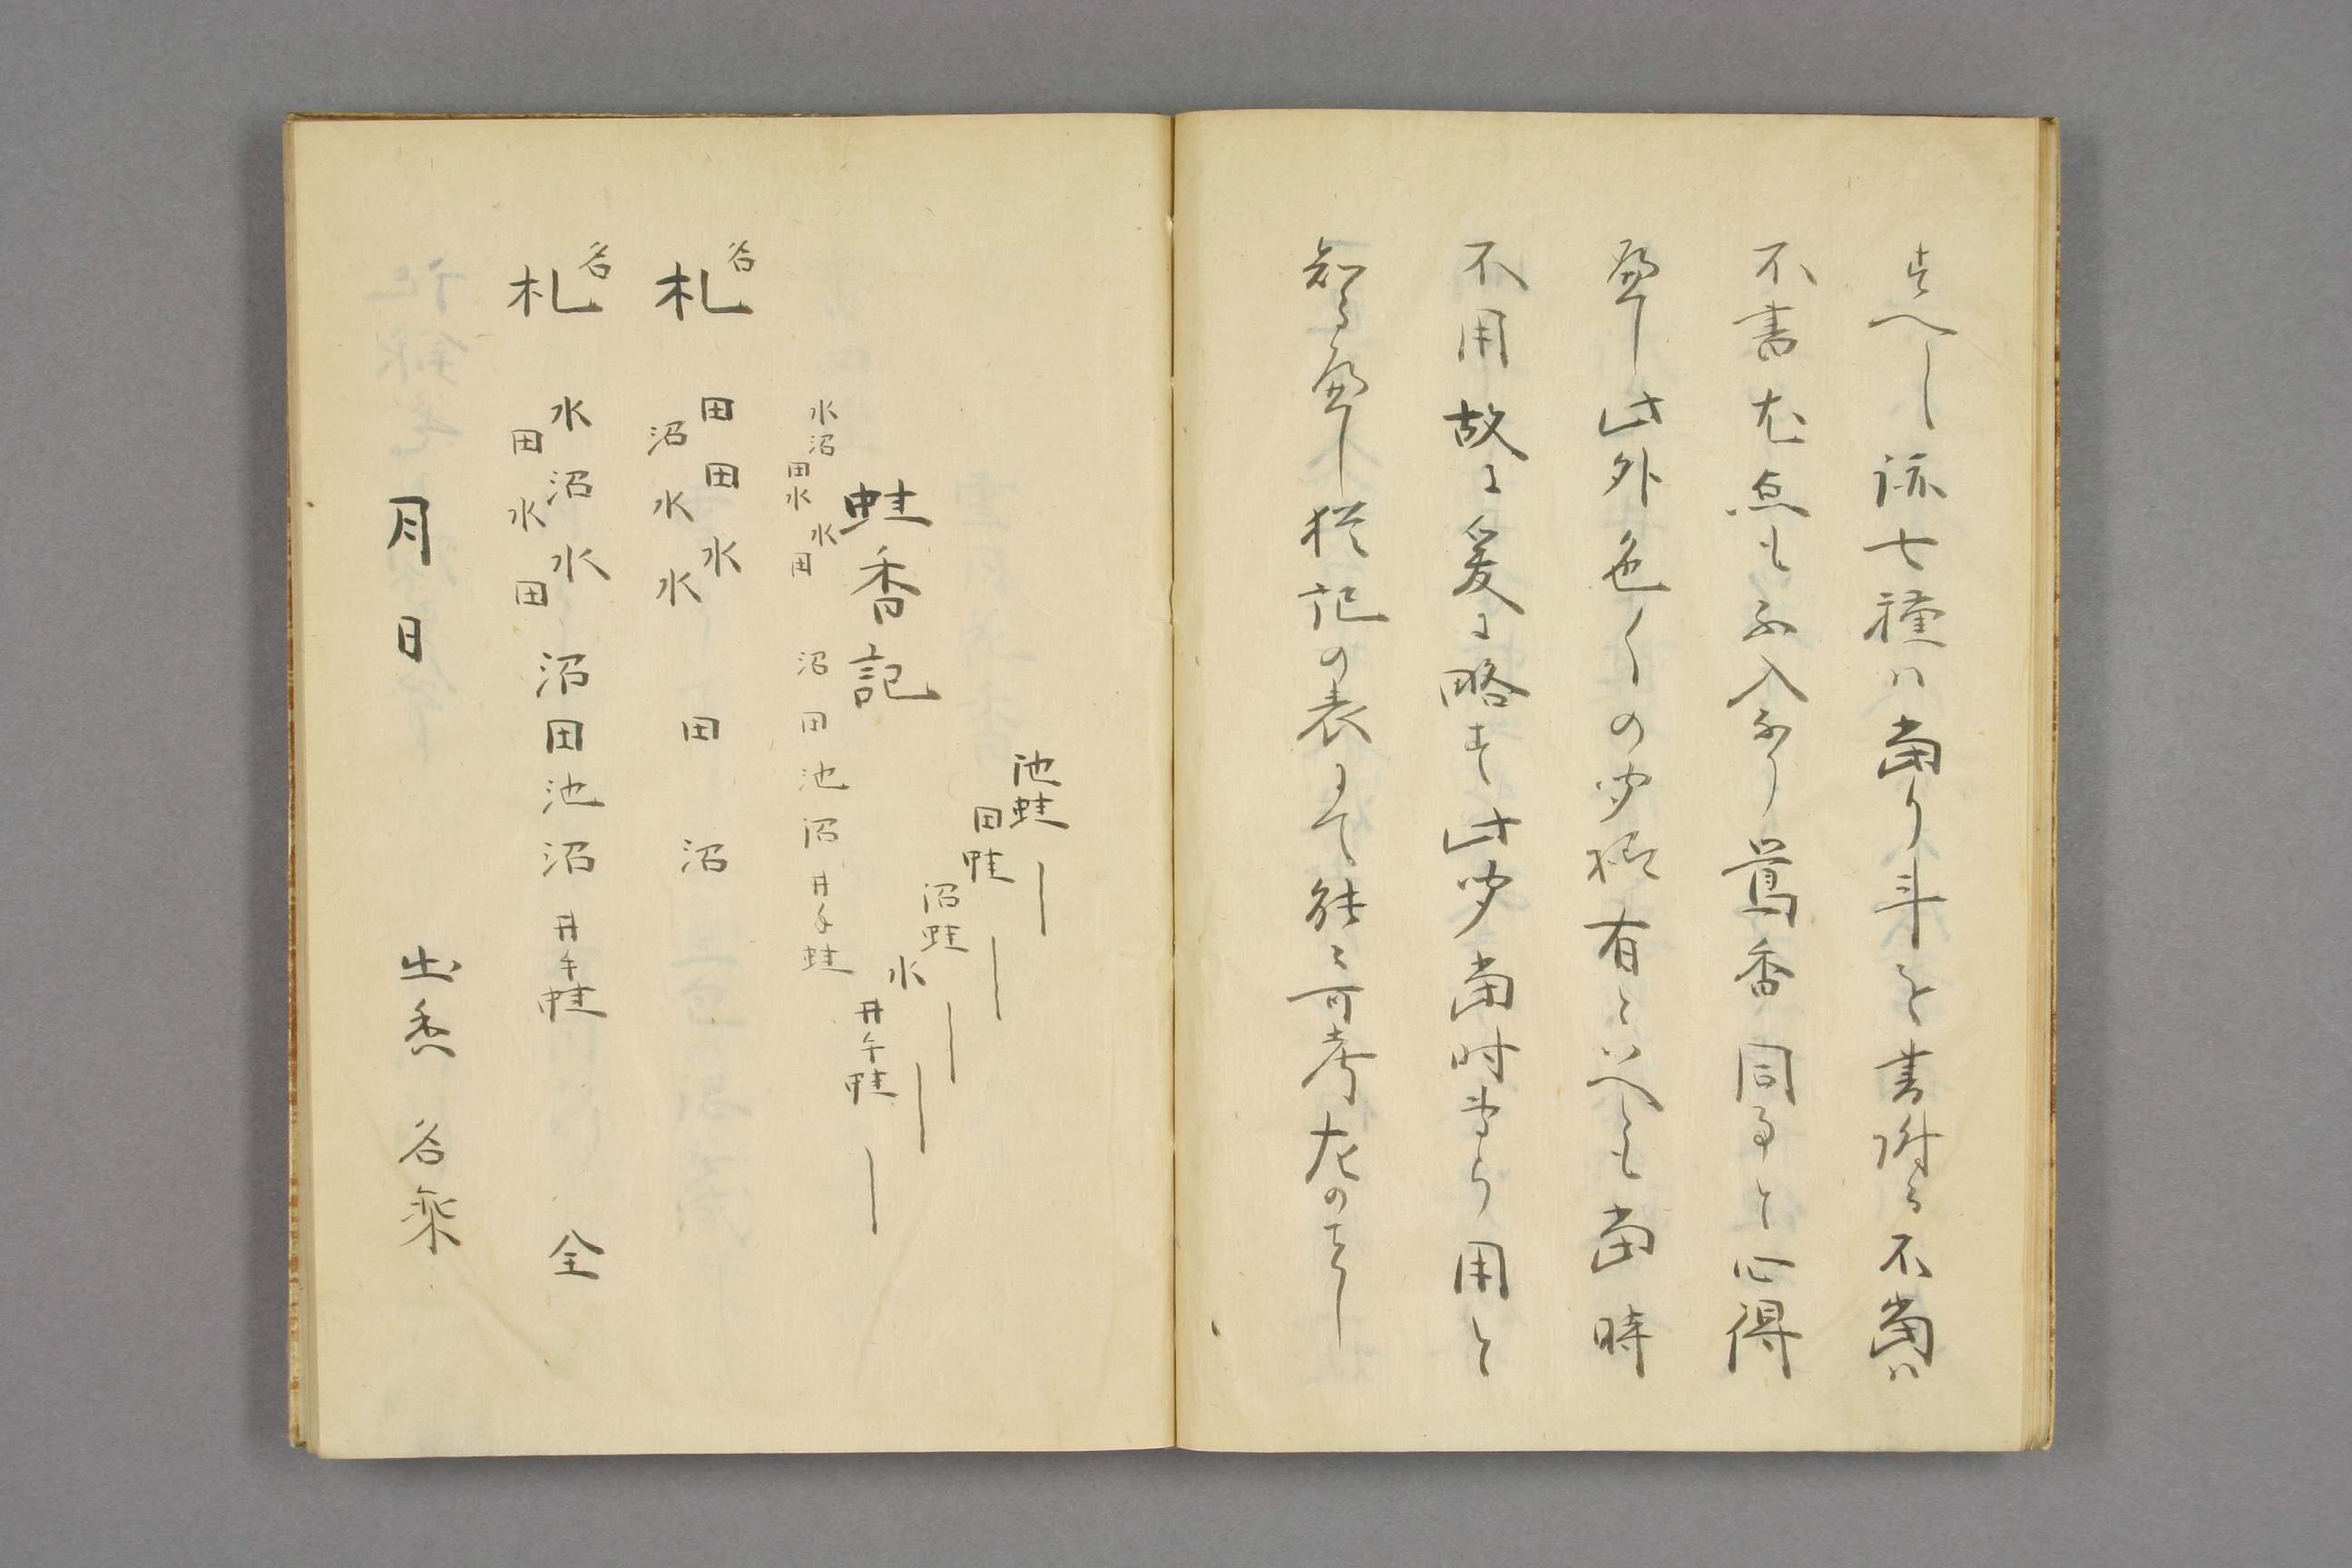 すへし跡七種ハ当り斗を書附る不当ハ
不書尤点も不入なり鶯香同事と心得
へし此外色〱の聞様有といへとも当時
不用故に爰に略す此聞当時専ら用と
知るへし猶記の表にて能々可考左のことし
池蛙
田蛙
沼蛙
水
井手蛙
蛙香記
水沼 田水 水田 沼 田 池 沼 井手蛙
名
札 田沼 田水 水水 田 沼
名
札 水田 沼水 水田 沼 田 池 沼 井手蛙 全
月日 出香 名乗